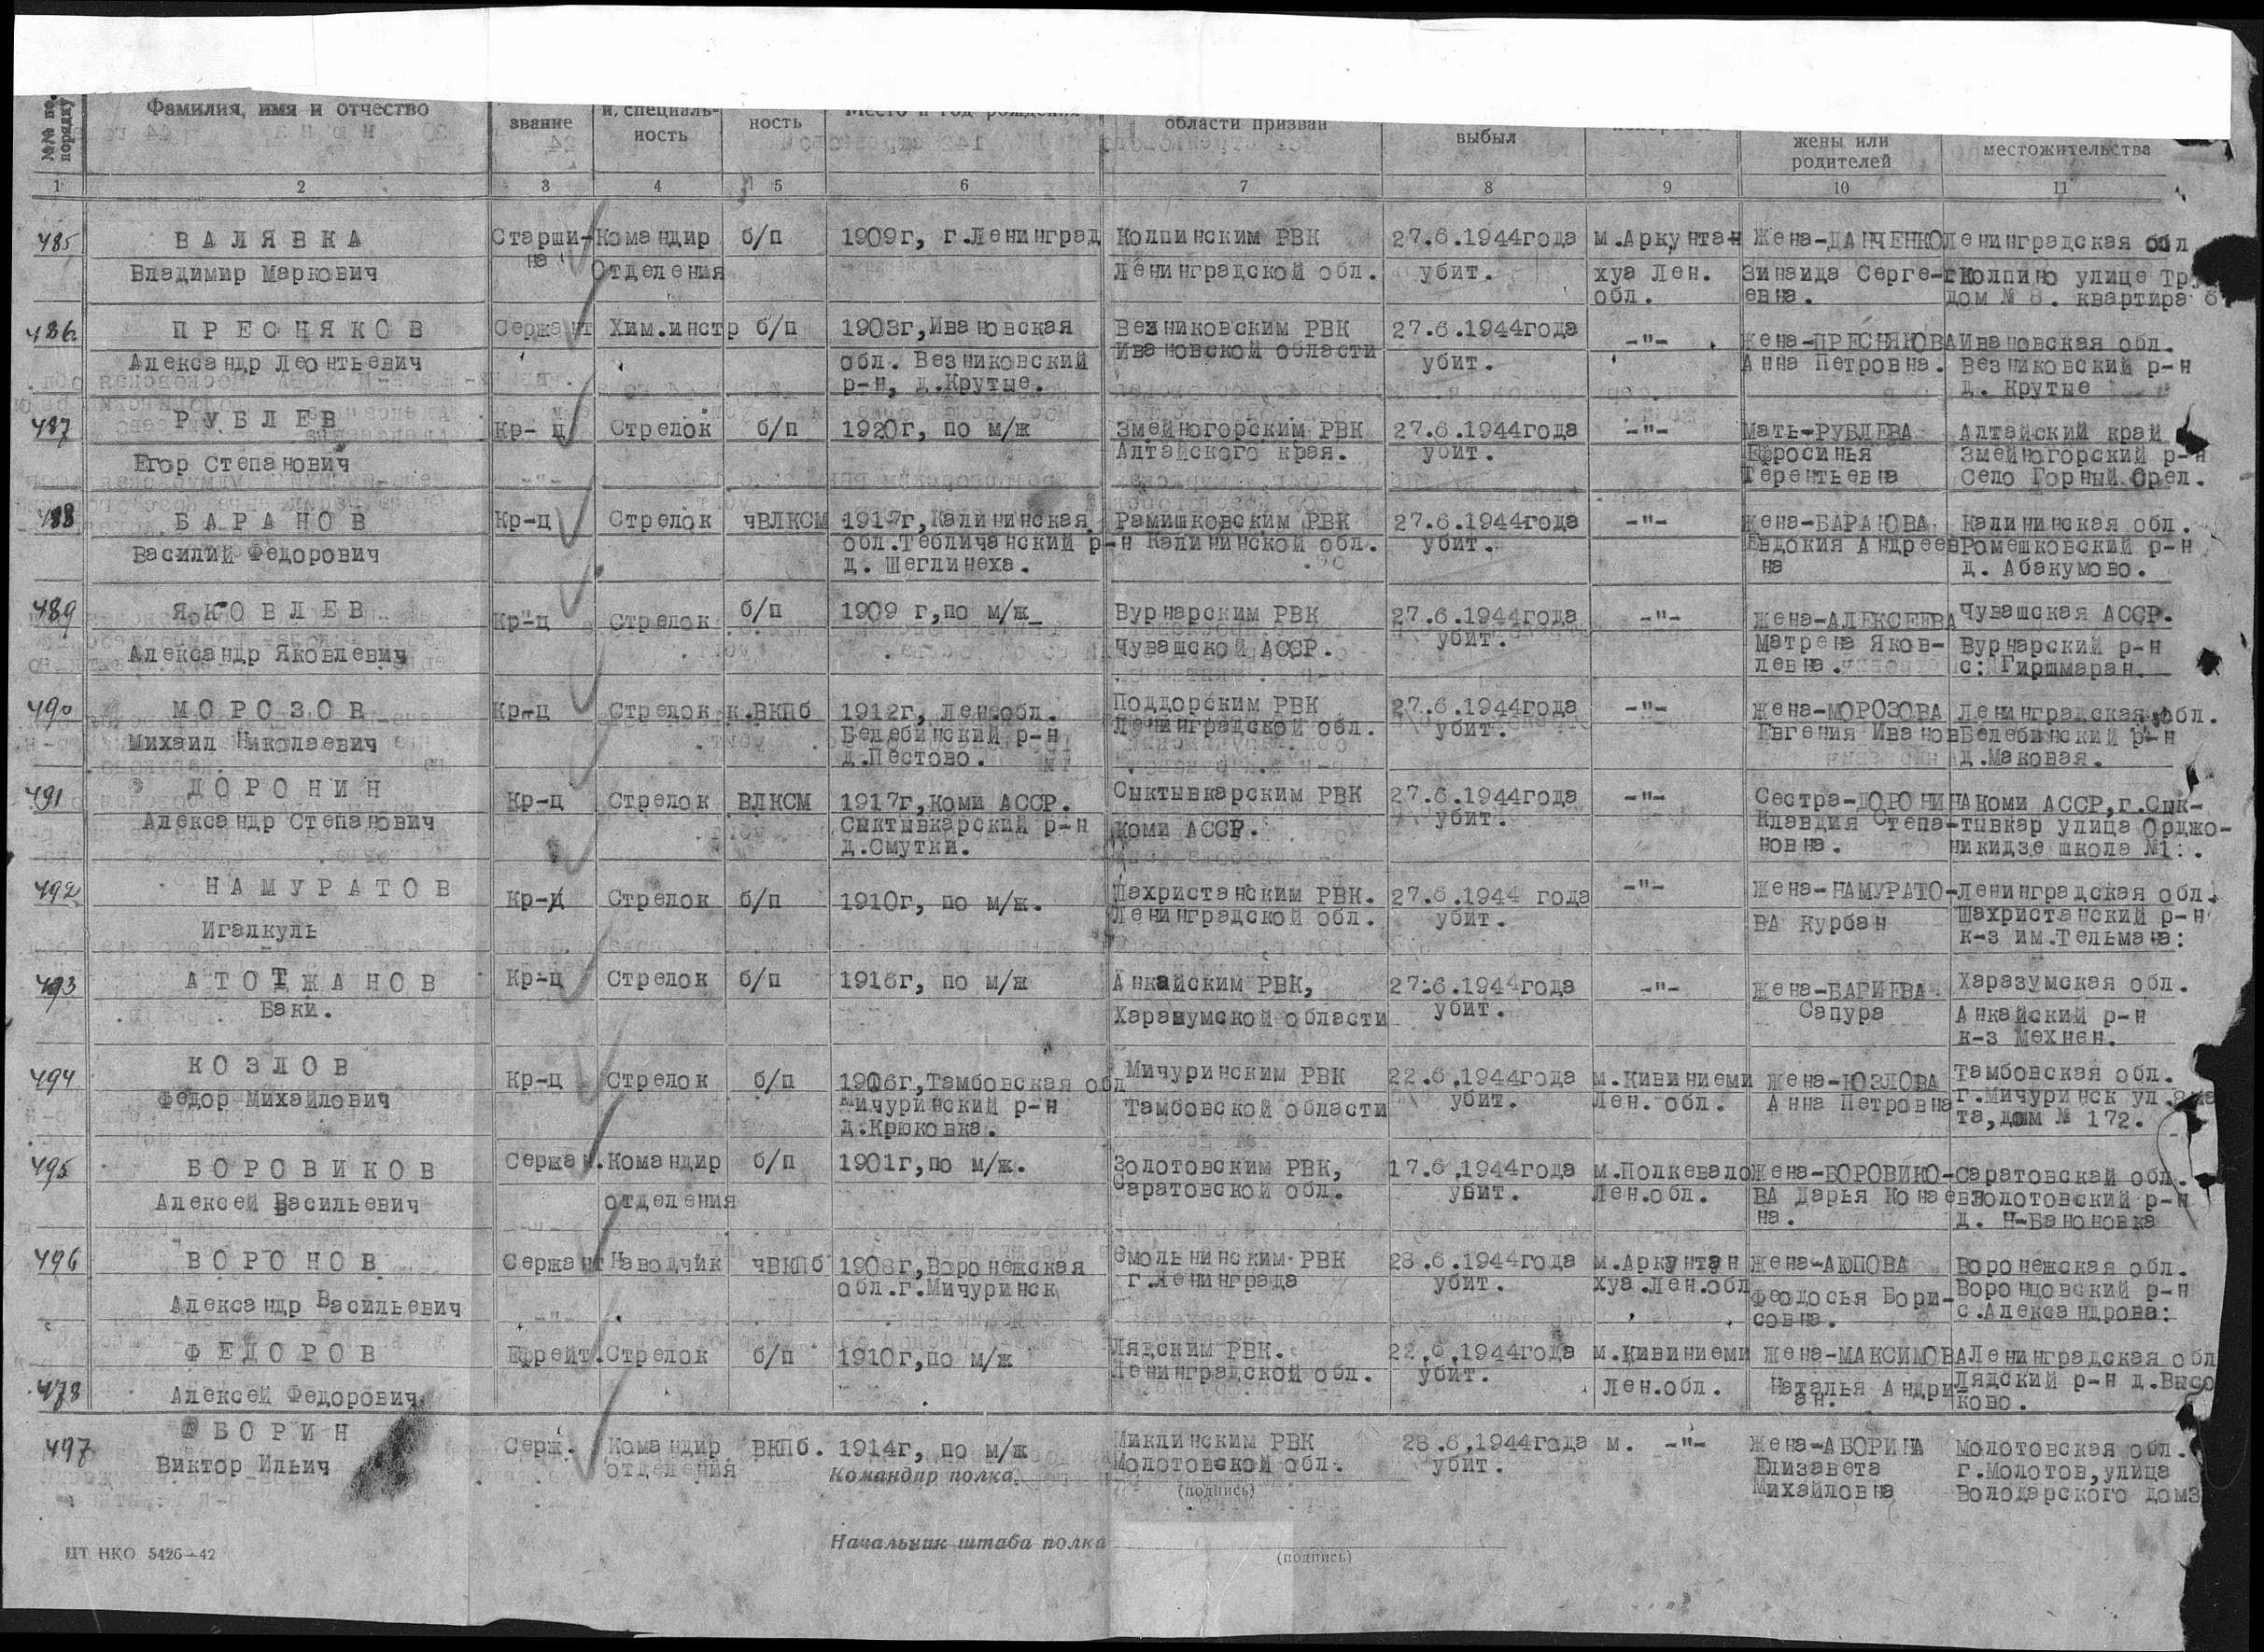 №№ по порядку
Фамилия, имя и отчество
звание
и специаль-
ность
ность
Место и год рождения
области призван
выбыл
жены или
родителей
местожительства
1 2 3 4 5 6 7 8 9 10 11
485 ВАЛЯВКА Старши- Командир б/п 1909г, г.Ленинград Колпинским РВК 27.6.1944года м.Аркунтан Жена-ДАНЧЕНКО Ленинградская обл
Владимир Маркович на Отделения Ленинградской обл. убит. хуа Лен. Зинаида Серге- г.Колпино улице
обл. евна. дом № 8. квартира 6
486 ПРЕСНЯКОВ Сержант Хим.инстр б/п 1903г,Ивановская Везниковским РВК 27.6.1944года -"- Жена-ПРЕСНЯКОВА Ивановская обл.
Александр Леонтьевич обл. Везниковский Ивановской области убит. Анна Петровна. Везниковский р-н
р-н, д.Крутые. д. Крутые
487 РУБЛЕВ Кр-ц Стрелок б/п 1920г, по м/ж Змейногорским РВК 27.6.1944года -"- Мать-РУБЛЕВА Алтайский край
Егор Степанович Алтайского края. убит. Ефросинья Змейногорский р-н
Терентьевна Село Горный Орел.
488 БАРАНОВ Кр-ц Стрелок чВЛКСМ 1917г,Калининская Рамишковским РВК 27.6.1944года -"- Жена-БАРАНОВА Калининская обл.
Василий Федорович обл.Тебличанский р-н Калининской обл. убит. Евдокия Андреев Ромешковский р-н
д. Шеглинеха. на д. Абакумово.
489 ЯКОВЛЕВ Кр-ц Стрелок б/п 1909 г,по м/ж Вурнарским РВК 27.6.1944года -"- Жена-АЛЕКСЕЕВА Чувашская АССР.
Александр Яковлевич Чувашской АССР. убит. Матрена Яков- Вурнарский р-н
левна. с: Гиршмаран.
490 МОРОЗОВ Кр-ц Стрелок к.ВКПб 1912г, Лен.обл. Поддорским РВК 27.6.1944года -"- Жена-МОРОЗОВА Ленинградская обл.
Михаил Николаевич Белебинский р-н Ленинградской обл. убит. Евгения Иванов Белебинский р-н
д.Пестово. д.Маковая.
491 ДОРОНИН Кр-ц Стрелок ВЛКСМ 1917г,Коми АССР. Сыктывкарским РВК 27.6.1944года -"- Сестра-ДОРОНИНА Коми АССР,г.Сык-
Александр Степанович Сыктывкарский р-н Коми АССР. убит. Клавдия Степа- тывкар улица Орджо-
д.Смутки. новна. никидзе школа №1:.
492 НАМУРАТОВ Кр-ц Стрелок б/п 1910г, по м/ж. Шахристанским РВК. 27.6.1944 года -"- Жена-НАМУРАТО- Ленинградская обл.
Игалкуль Ленинградской обл. убит. ВА Курбан Шахристанский р-н
к-з им.Тельмана:
493 АТОТЖАНОВ Кр-ц Стрелок б/п 1916г, по м/ж Анкайским РВК, 27.6.1944года -"- Жена-БАГИЕВА Харазумская обл.
Баки. Харазумской области убит. Сапура Анкайский р-н
к-з Мехнен.
494 КОЗЛОВ Кр-ц Стрелок б/п 1906г,Тамбовская обл Мичуринским РВК 22.6.1944года м.Кивиниеми Жена-КОЗЛОВА Тамбовская обл.
Федор Михайлович Мичуринский р-н Тамбовской области убит. Лен. обл. Анна Петровна г.Мичуринск ул.
д.Крюковка. та,дом № 172.
495 БОРОВИКОВ Сержан. Командир б/п 1901г,по м/ж. Золотовским РВК, 17.6.1944года м.Полкевало Жена-БОРОВИКО- Саратовскай обл.
Алексей Васильевич отделения Саратовской обл. убит. Лен.обл. ВА Дарья Конаев Золотовский р-н
на. д. Н-Баноновка
496 ВОРОНОВ Сержант Наводчик чВКПб 1908г,Воронежская Смольнинским РВК 28.6.1944года м.Аркунтан Жена-АЮПОВА Воронежская обл.
Александр Васильевич обл.г.Мичуринск г.Ленинграда убит. хуа.Лен.обл Феодосья Бори- Воронцовский р-н
совна. с.Александрова:
ФЕДОРОВ Ефрейт. Стрелок б/п 1910г,по м/ж Лядским РВК. 22.6.1944года м.Кивиниеми Жена-МАКСИМОВА Ленинградская обл
478 Алексей Федорович Ленинградской обл. убит. Лен.обл. Наталья Андри- Лядский р-н д.Высо
ан. ково.
497 АБОРИН Серж. Командир ВКПб. 1914г, по м/ж Миклинским РВК 28.6.1944года м. -"- Жена-АБОРИНА Молотовская обл.
Виктор Ильич отделения Молотовской обл. убит. Елизавета г.Молотов,улица
Командир полка (подпись) Михайловна Володарского дом3
Начальник штаба полка (подпись)
ЦТ НКО 5426—42